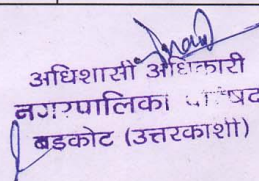 अधिशासी अधिकारी
नगरपालिका
बडकोट (उत्तरकाशी)